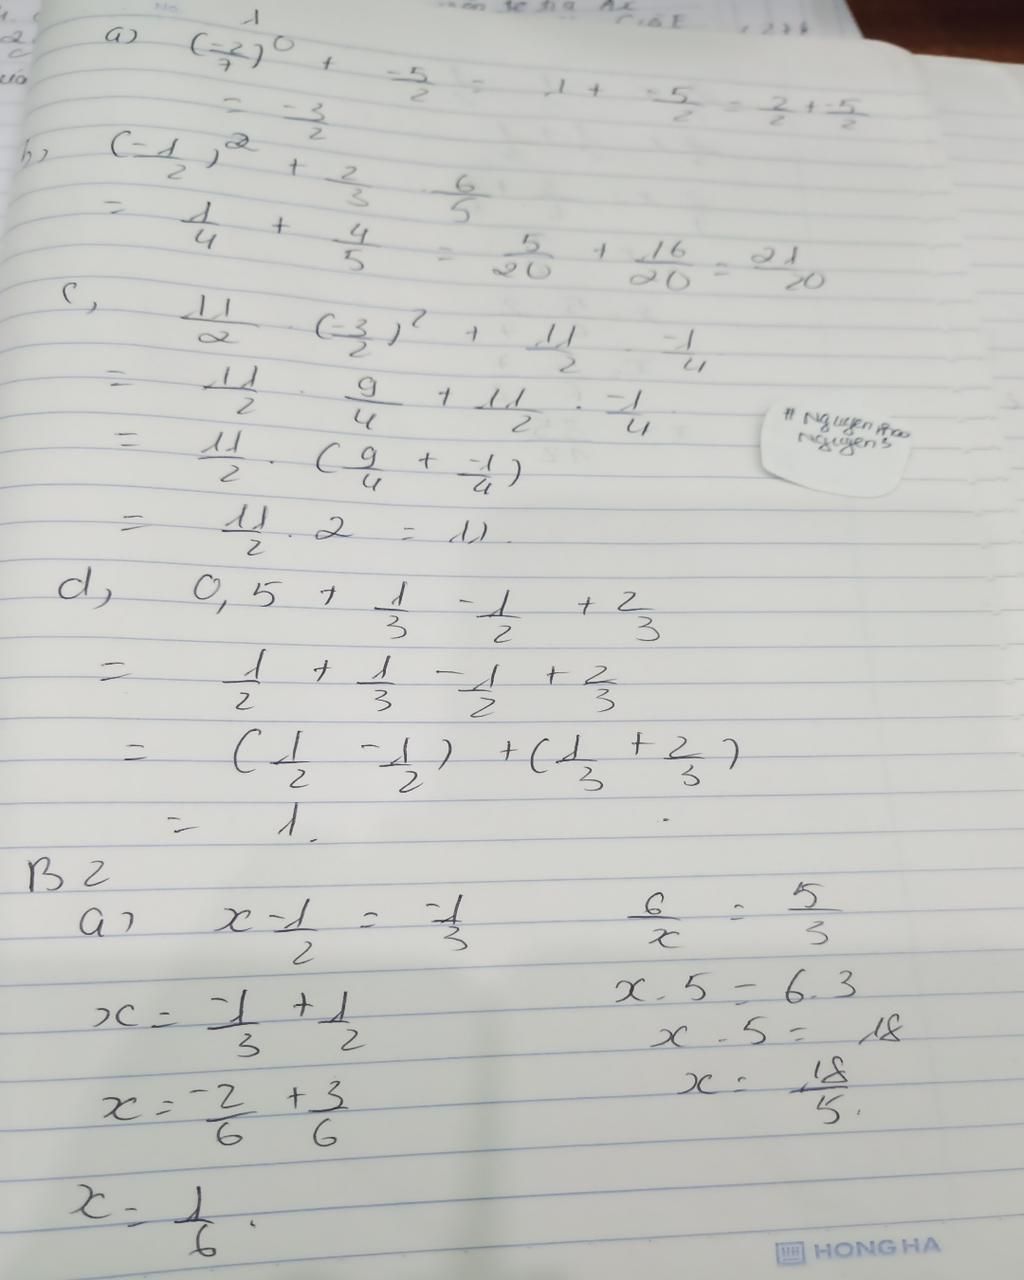 a) (-2/7)^0 + -5/2 = 1 + -5/2 = 2/2 + -5/2
= -3/2
b, (-1/2)^2 + 2/3 . 6/5
= 1/4 + 4/5 = 5/20 + 16/20 = 21/20
c, 11/2 . (-3/2)^2 + 11/2 . -1/4
= 11/2 . 9/4 + 11/2 . -1/4
= 11/2 . (9/4 + -1/4)
= 11/2 . 2 = 11.
# Nguyen
Nguyen3
d, 0,5 + 1/3 - 1/2 + 2/3
= 1/2 + 1/3 - 1/2 + 2/3
= (1/2 - 1/2) + (1/3 + 2/3)
= 1.
B2
a) x - 1/2 = -1/3
x = -1/3 + 1/2
x = -2/6 + 3/6
x = 1/6.
6/x = 5/3
x . 5 = 6.3
x . 5 = 18
x = 18/5.
HONG HA